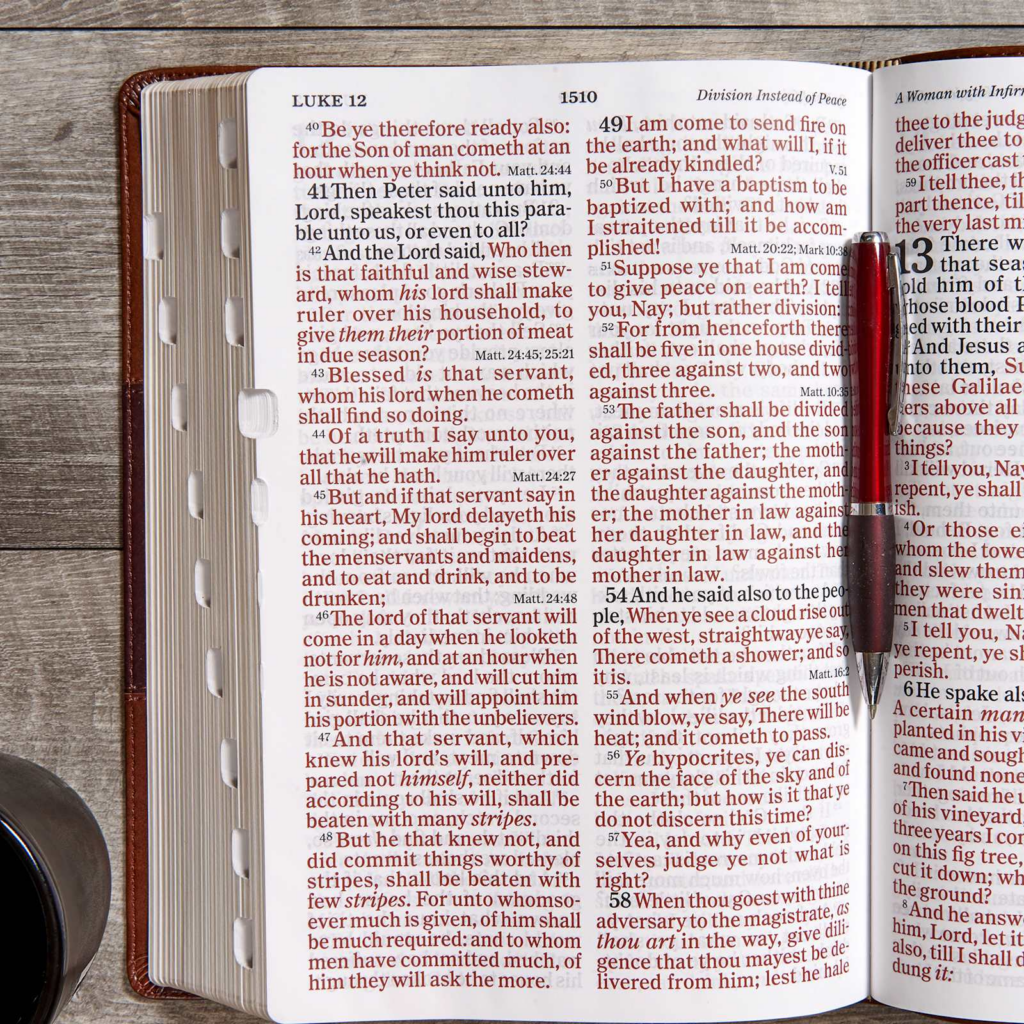 LUKE 12
1510
Division Instead of Peace
40 Be ye therefore ready also:
for the Son of man cometh at an
hour when ye think not. Matt. 24:44
41 Then Peter said unto him,
Lord, speakest thou this para-
ble unto us, or even to all?
42 And the Lord said, Who then
is that faithful and wise stew-
ard, whom his lord shall make
ruler over his household, to
give them their portion of meat
in due season? Matt. 24:45; 25:21
43 Blessed is that servant,
whom his lord when he cometh
shall find so doing.
44 Of a truth I say unto you,
that he will make him ruler over
all that he hath. Matt. 24:27
45 But and if that servant say in
his heart, My lord delayeth his
coming; and shall begin to beat
the menservants and maidens,
and to eat and drink, and to be
drunken; Matt. 24:48
46 The lord of that servant will
come in a day when he looketh
not for him, and at an hour when
he is not aware, and will cut him
in sunder, and will appoint him
his portion with the unbelievers.
47 And that servant, which
knew his lord's will, and pre-
pared not himself, neither did
according to his will, shall be
beaten with many stripes.
48 But he that knew not, and
did commit things worthy of
stripes, shall be beaten with
few stripes. For unto whomso-
ever much is given, of him shall
be much required: and to whom
men have committed much, of
him they will ask the more.
49 I am come to send fire on
the earth; and what will I, if it
be already kindled? V. 51
50 But I have a baptism to be
baptized with; and how am
I straitened till it be accom-
plished! Matt. 20:22; Mark 10:38
51 Suppose ye that I am come
to give peace on earth? I tell
you, Nay; but rather division:
52 For from henceforth there
shall be five in one house divid-
ed, three against two, and two
against three. Matt. 10:35
53 The father shall be divided
against the son, and the son
against the father; the moth-
er against the daughter, and
the daughter against the moth-
er; the mother in law against
her daughter in law, and the
daughter in law against her
mother in law.
54 And he said also to the peo-
ple, When ye see a cloud rise out
of the west, straightway ye say,
There cometh a shower; and so
it is. Matt. 16:2
55 And when ye see the south
wind blow, ye say, There will be
heat; and it cometh to pass.
56 Ye hypocrites, ye can dis-
cern the face of the sky and of
the earth; but how is it that ye
do not discern this time?
57 Yea, and why even of your-
selves judge ye not what is
right?
58 When thou goest with thine
adversary to the magistrate, as
thou art in the way, give dili-
gence that thou mayest be de-
livered from him; lest he hale
A Woman with Infirm
thee to the judg
deliver thee to
the officer cast
59 I tell thee, th
part thence, til
the very last m
13 There w
that seas
told him of t
whose blood P
led with their
And Jesus a
unto them, Su
these Galilae
ers above all
because they
things?
3 I tell you, Nay
repent, ye shall
ish.
4 Or those ei
whom the towe
and slew them
they were sin
men that dwelt
5 I tell you, Na
ye repent, ye sh
perish.
6 He spake als
A certain man
planted in his vi
came and sough
and found none
7 Then said he u
of his vineyard
three years I com
on this fig tree,
cut it down; wh
the ground?
8 And he answ
him, Lord, let it
also, till I shall d
dung it: